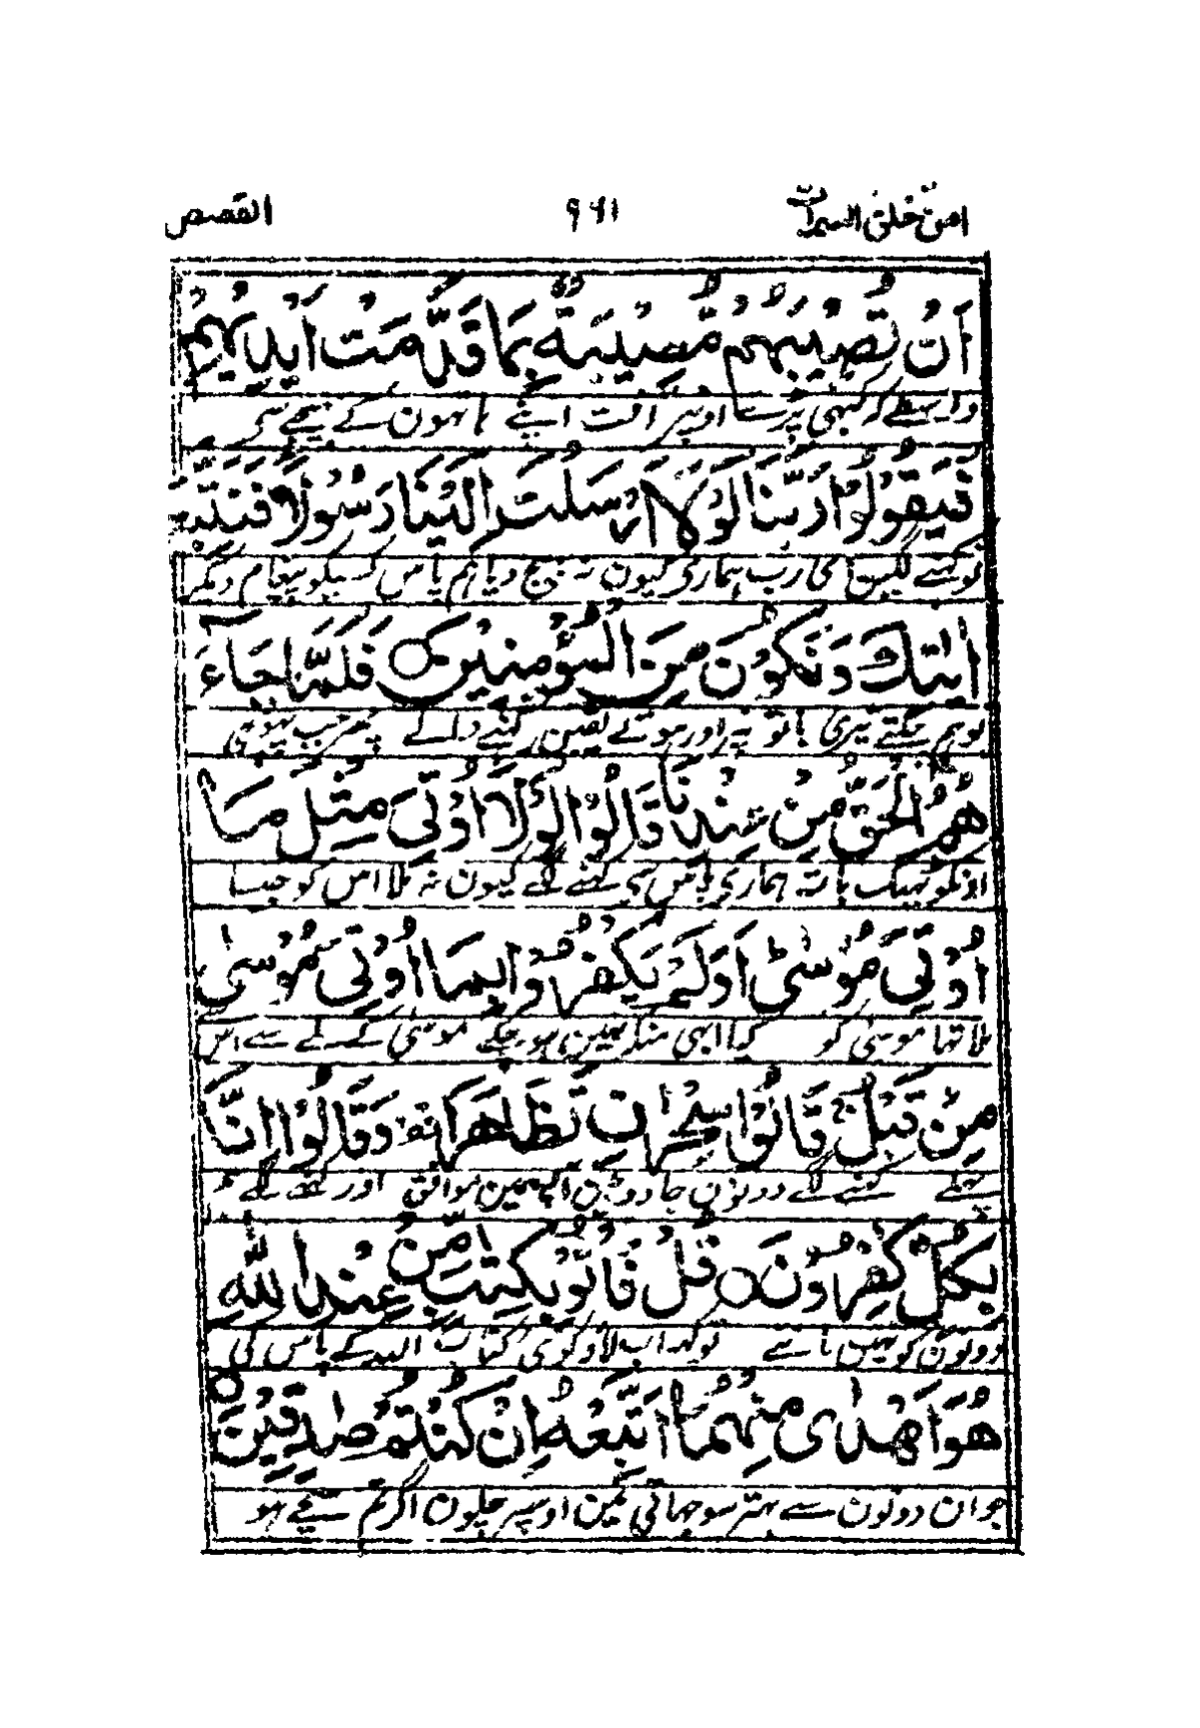 امن خلق السمٰوٰت ۹۶۱ القصص
اَنْ تُصِيْبَهُمْ مُّصِيْبَةٌۢ بِمَا قَدَّمَتْ اَيْدِيْهِمْ
واسطے کہ کبھی پڑے اونپر آفت اپنے ہاتہون کے بہیجے سے
فَيَقُوْلُوْا رَبَّنَا لَوْلَاۤ اَرْسَلْتَ اِلَيْنَا رَسُوْلًا فَنَتَّبِعَ
تو کہنے لگیں ای رب ہماری کیون نہ بہیج دیا ہم پاس کسیکو پیغام دیکر
اٰيٰتِكَ وَنَكُوْنَ مِنَ الْمُؤْمِنِيْنَ ○ فَلَمَّا جَآءَ
تو ہم چلتے تیری باتو پہ اور ہوتے یقین رکہنے والے پہر جب پہونچی
هُمُ الْحَقُّ مِنْ عِنْدِنَا قَالُوْا لَوْلَاۤ اُوْتِيَ مِثْلَ مَاۤ
اونکو ٹہیک بات ہماری پاس سی کہنے لگے کیون نہ ملا اس کو جیسا
اُوْتِيَ مُوْسٰى اَوَلَمْ يَكْفُرُوْا بِمَاۤ اُوْتِيَ مُوْسٰى
ملا تہا موسیٰ کو کیا ابہی منکر نہین ہو چکے موسیٰ کے ملے سے اس
مِنْ قَبْلُ ۚ قَالُوْا سِحْرٰنِ تَظَاهَرَا وَقَالُوْۤا اِنَّا
پہلے کہنے لگے دونون جادو ہین آپسمین موافق اور کہنے لگے ہم
بِكُلٍّ كٰفِرُوْنَ ○ قُلْ فَاْتُوْا بِكِتٰبٍ مِّنْ عِنْدِ اللّٰهِ
دونون کو نہین مانتے تو کہہ اب لاؤ کوئی کتاب اللہ کے پاس کی
هُوَ اَهْدٰى مِنْهُمَاۤ اَتَّبِعْهُ اِنْ كُنْتُمْ صٰدِقِيْنَ ○
جو ان دونون سے بہتر سوجہاتی مین اوسپر چلون اگر تم سچے ہو